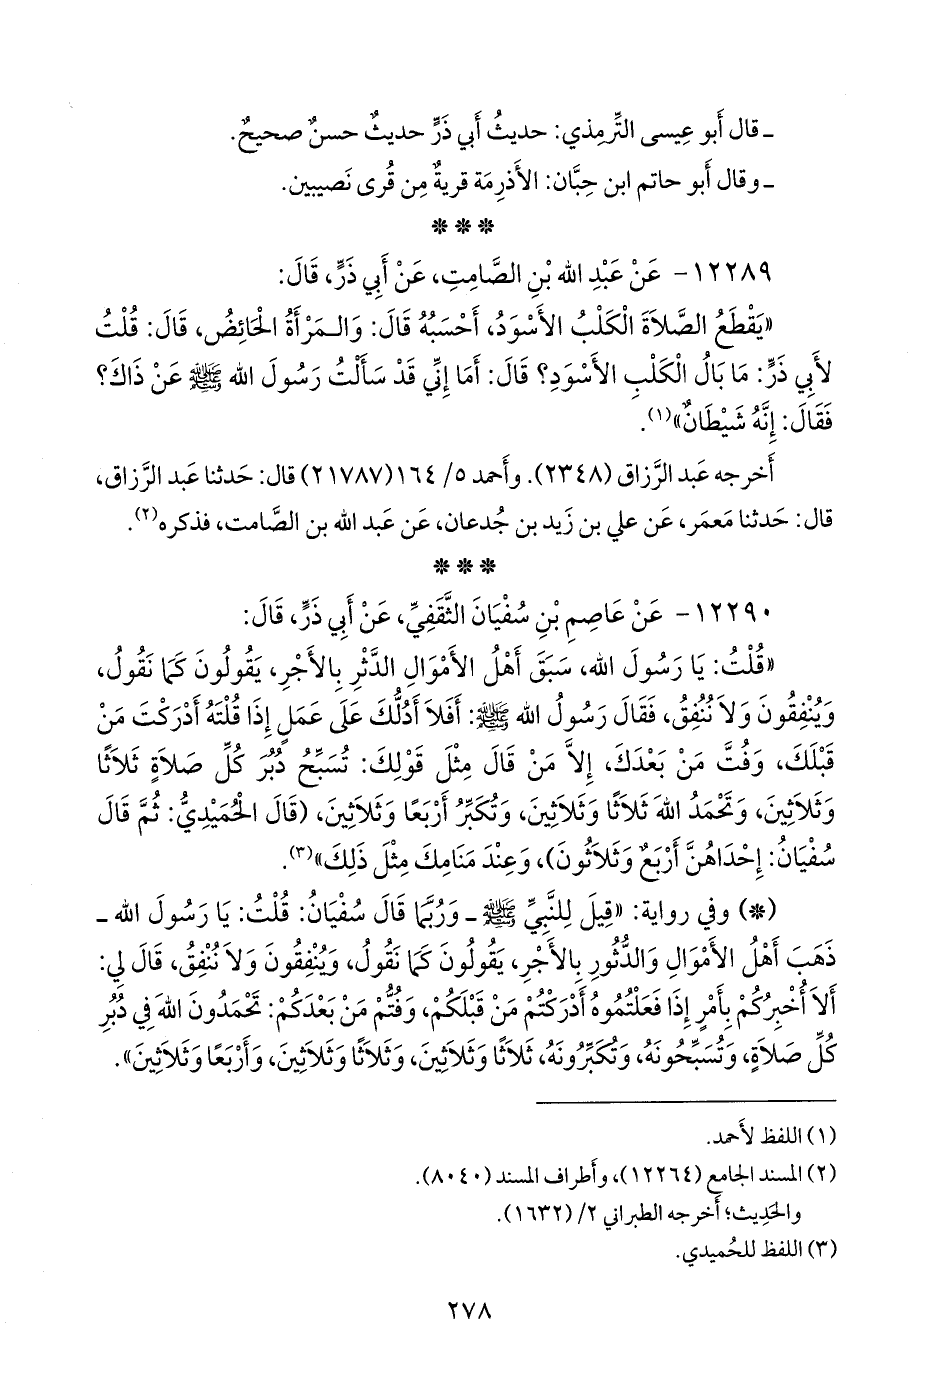 ـ قال أَبو عِيسى التِّرمِذي: حديثُ أَبي ذَرٍّ حديثٌ حسنٌ صحيحٌ.
ـ وقال أَبو حاتم ابن حِبَّان: الأَذرِمَة قريةٌ مِن قُرى نَصيبين.
* * *
١٢٢٨٩ - عَنْ عَبْدِ الله بْنِ الصَّامِتِ، عَنْ أَبِي ذَرٍّ، قَالَ:
«يَقْطَعُ الصَّلاَةَ الْكَلْبُ الأَسْوَدُ، أَحْسَبُهُ قَالَ: وَالْمَرْأَةُ الْحَائِضُ، قَالَ: قُلْتُ
لأَبِي ذَرٍّ: مَا بَالُ الْكَلْبِ الأَسْوَدِ؟ قَالَ: أَمَا إِنِّي قَدْ سَأَلْتُ رَسُولَ الله ﷺ عَنْ ذَاكَ؟
فَقَالَ: إِنَّهُ شَيْطَانٌ»(١).
أَخرجه عَبد الرَّزاق (٢٣٤٨). وأَحمد ٥/ ١٦٤(٢١٧٨٧) قال: حَدثنا عَبد الرَّزاق،
قال: حَدثنا مَعمَر، عَن علي بن زَيد بن جُدعان، عَن عَبد الله بن الصَّامت، فذكره(٢).
* * *
١٢٢٩٠ - عَنْ عَاصِمِ بْنِ سُفْيَانَ الثَّقَفِيِّ، عَنْ أَبِي ذَرٍّ، قَالَ:
«قُلْتُ: يَا رَسُولَ الله، سَبَقَ أَهْلُ الأَمْوَالِ الدَّثْرِ بِالأَجْرِ، يَقُولُونَ كَمَا نَقُولُ،
وَيُنْفِقُونَ وَلاَ نُنْفِقُ، فَقَالَ رَسُولُ الله ﷺ: أَفَلاَ أَدُلُّكَ عَلَى عَمَلٍ إِذَا قُلْتَهُ أَدْرَكْتَ مَنْ
قَبْلَكَ، وَفُتَّ مَنْ بَعْدَكَ، إِلاَّ مَنْ قَالَ مِثْلَ قَوْلِكَ: تُسَبِّحُ دُبُرَ كُلِّ صَلاَةٍ ثَلاَثًا
وَثَلاَثِينَ، وَتَحْمَدُ اللهَ ثَلاَثًا وَثَلاَثِينَ، وَتُكَبِّرُ أَرْبَعًا وَثَلاَثِينَ، (قَالَ الْحُمَيْدِيُّ: ثُمَّ قَالَ
سُفْيَانُ: إِحْدَاهُنَّ أَرْبَعٌ وَثَلاَثُونَ)، وَعِنْدَ مَنَامِكَ مِثْلَ ذَلِكَ»(٣).
(*) وفي رواية: «قِيلَ لِلنَّبِيِّ ﷺ ـ وَرُبَّمَا قَالَ سُفْيَانُ: قُلْتُ: يَا رَسُولَ الله ـ
ذَهَبَ أَهْلُ الأَمْوَالِ وَالدُّثُورِ بِالأَجْرِ، يَقُولُونَ كَمَا نَقُولُ، وَيُنْفِقُونَ وَلاَ نُنْفِقُ، قَالَ لِي:
أَلاَ أُخْبِرُكُمْ بِأَمْرٍ إِذَا فَعَلْتُمُوهُ أَدْرَكْتُمْ مَنْ قَبْلَكُمْ، وَفُتُّمْ مَنْ بَعْدَكُمْ: تَحْمَدُونَ اللهَ فِي دُبُرِ
كُلِّ صَلاَةٍ، وَتُسَبِّحُونَهُ، وَتُكَبِّرُونَهُ، ثَلاَثًا وَثَلاَثِينَ، وَثَلاَثًا وَثَلاَثِينَ، وَأَرْبَعًا وَثَلاَثِينَ».
(١) اللفظ لأَحمد.
(٢) المسند الجامع (١٢٢٦٤)، وأَطراف المسند (٨٠٤٠).
والحَدِيث؛ أَخرجه الطبراني ٢/ (١٦٣٢).
(٣) اللفظ للحُميدي.
٢٧٨